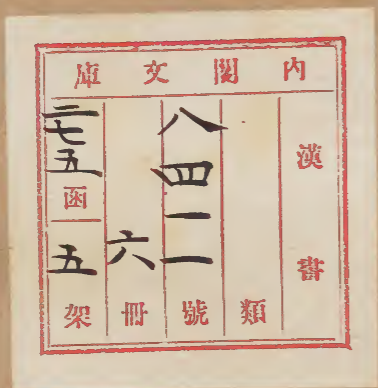 內閣文庫
漢書
類
八四一一號
六冊
二七五函
五架